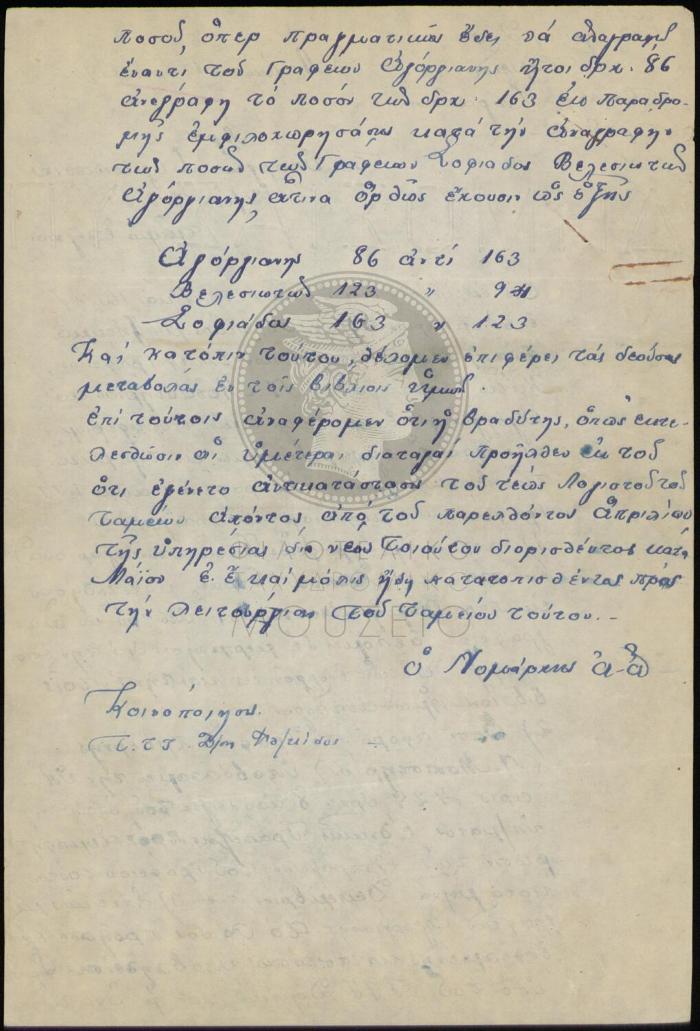 ποσοῦ, ὅπερ πραγματικῶς ἔδει νὰ ἀναγραφῇ
ἔναντι τοῦ Γραφείου Ἀγόργιανης ἤτοι δρχ. 86
ἀνεγράφη τὸ ποσὸν τῶν δρχ. 163 ἐκ παραδρο-
μῆς ἐμφιλοχωρησάσης κατὰ τὴν ἀναγραφὴν
τῶν ποσῶν τῶν Γραφείων Σοφιάδος Βελεσιωτῶν
Ἀγόργιανης, ἅτινα ὀρθῶς ἔχουσιν ὡς ἑξῆς
Ἀγόργιανης 86 ἀντὶ 163
Βελεσιωτῶν 123 "
Σοφιάδος 163 " 123
Καὶ κατόπιν τούτου, θέλομεν ἐπιφέρει τὰς δεούσας
μεταβολὰς ἐν τοῖς βιβλίοις ἡμῶν.
Ἐπὶ τούτοις ἀναφέρομεν ὅτι ἡ βραδύτης, ὅπως ἐκτε-
λεσθῶσιν αἱ ὑμέτεραι διαταγαὶ προῆλθεν ἐκ τοῦ
ὅτι ἐγένετο ἀντικατάστασις τοῦ τέως Λογιστοῦ τοῦ
Ταμείου ἀπόντος ἀπὸ τοῦ παρελθόντος Ἀπριλίου
τῆς ὑπηρεσίας διὰ νέου τοιούτου διορισθέντος κατὰ
Μάϊον ἐ. ἔ. καὶ μόλις ἤδη κατατοπισθέντος πρὸς
τὴν λειτουργίαν τοῦ Ταμείου τούτου.-
Ὁ Νομάρχης ἀ-ἀ
Κοινοποίησις
Τ.Τ.Τ. Φωκίδος
ΦΙΛΟΤΕΛΙΚΟ
ΜΟΥΣΕΙΟ